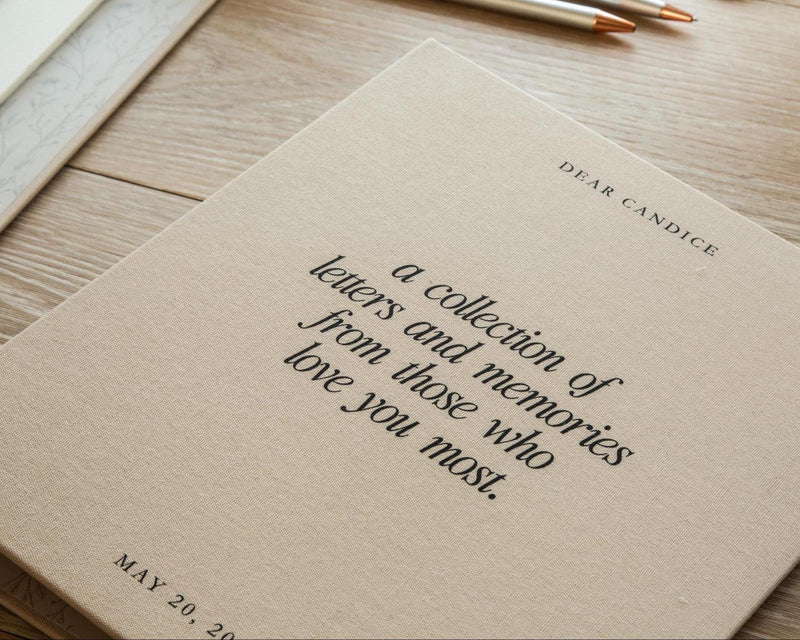 DEAR CANDICE
a collection of
letters and memories
from those who
love you most.
MAY 20, 20